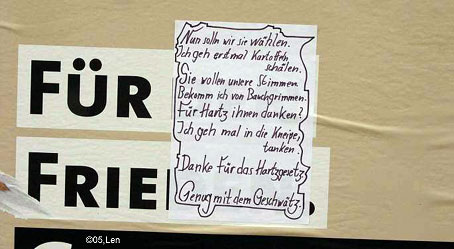 FÜR
FRIE
Nun solln wir sie wählen.
Ich geh erstmal Kartoffeln
schälen.
Sie wollen unsere Stimmen
Bekomm ich von Bauchgrimmen.
Für Hartz ihnen danken?
Ich geh mal in die Kneipe,
tanken.
Danke Für das Hartzgesetz,
Genug mit dem Geschwätz.
©05,Len